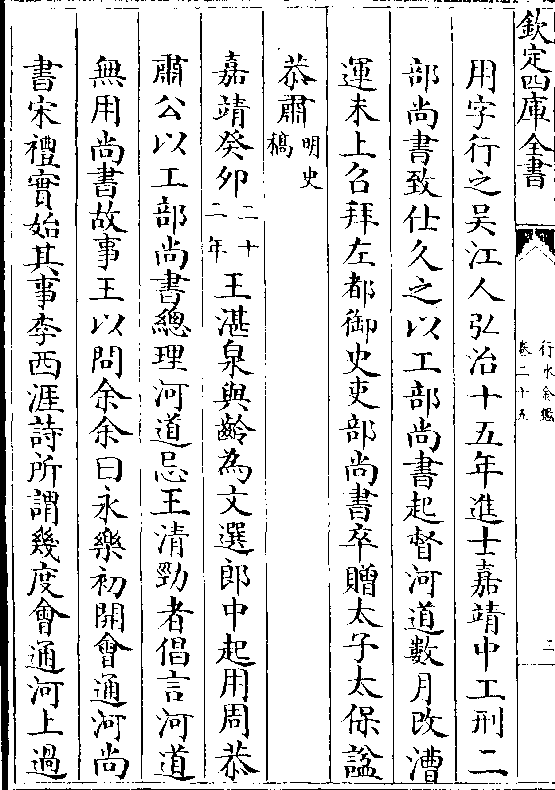 欽定四庫全書
行水金鑑
卷二十五
二
用字行之吳江人弘治十五年進士嘉靖中工刑二
部尚書致仕久之以工部尚書起督河道數月改漕
運未上召拜左都御史吏部尚書卒贈太子太保諡
恭肅明史稿
嘉靖癸卯二十二年王湛泉與齡為文選郎中起用周恭
肅公以工部尚書總理河道忌王清勁者倡言河道
無用尚書故事王以問余余曰永樂初開會通河尚
書宋禮實始其事李西涯詩所謂幾度會通河上過